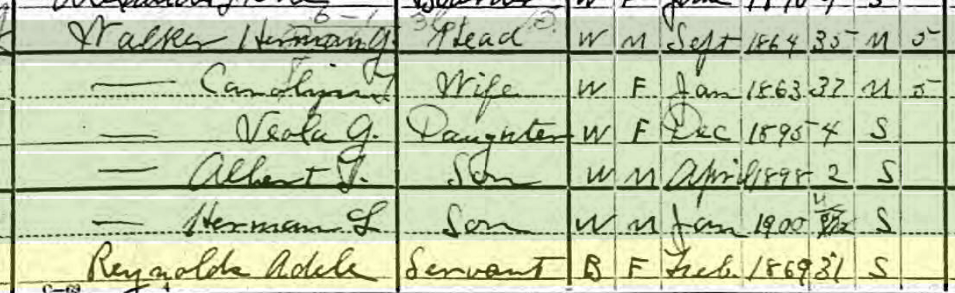 W F June 1890 9 S
Walker Herman G. Head W M Sept 1864 35 M 5
— Carolyn Wife W F Jan 1863 37 M 5
— Veola G. Daughter W F Dec 1895 4 S
— Albert J. Son W M April 1898 2 S
— Herman L Son W M Jan 1900 S
Reynolds Adele Servant B F Feb. 1869 31 S